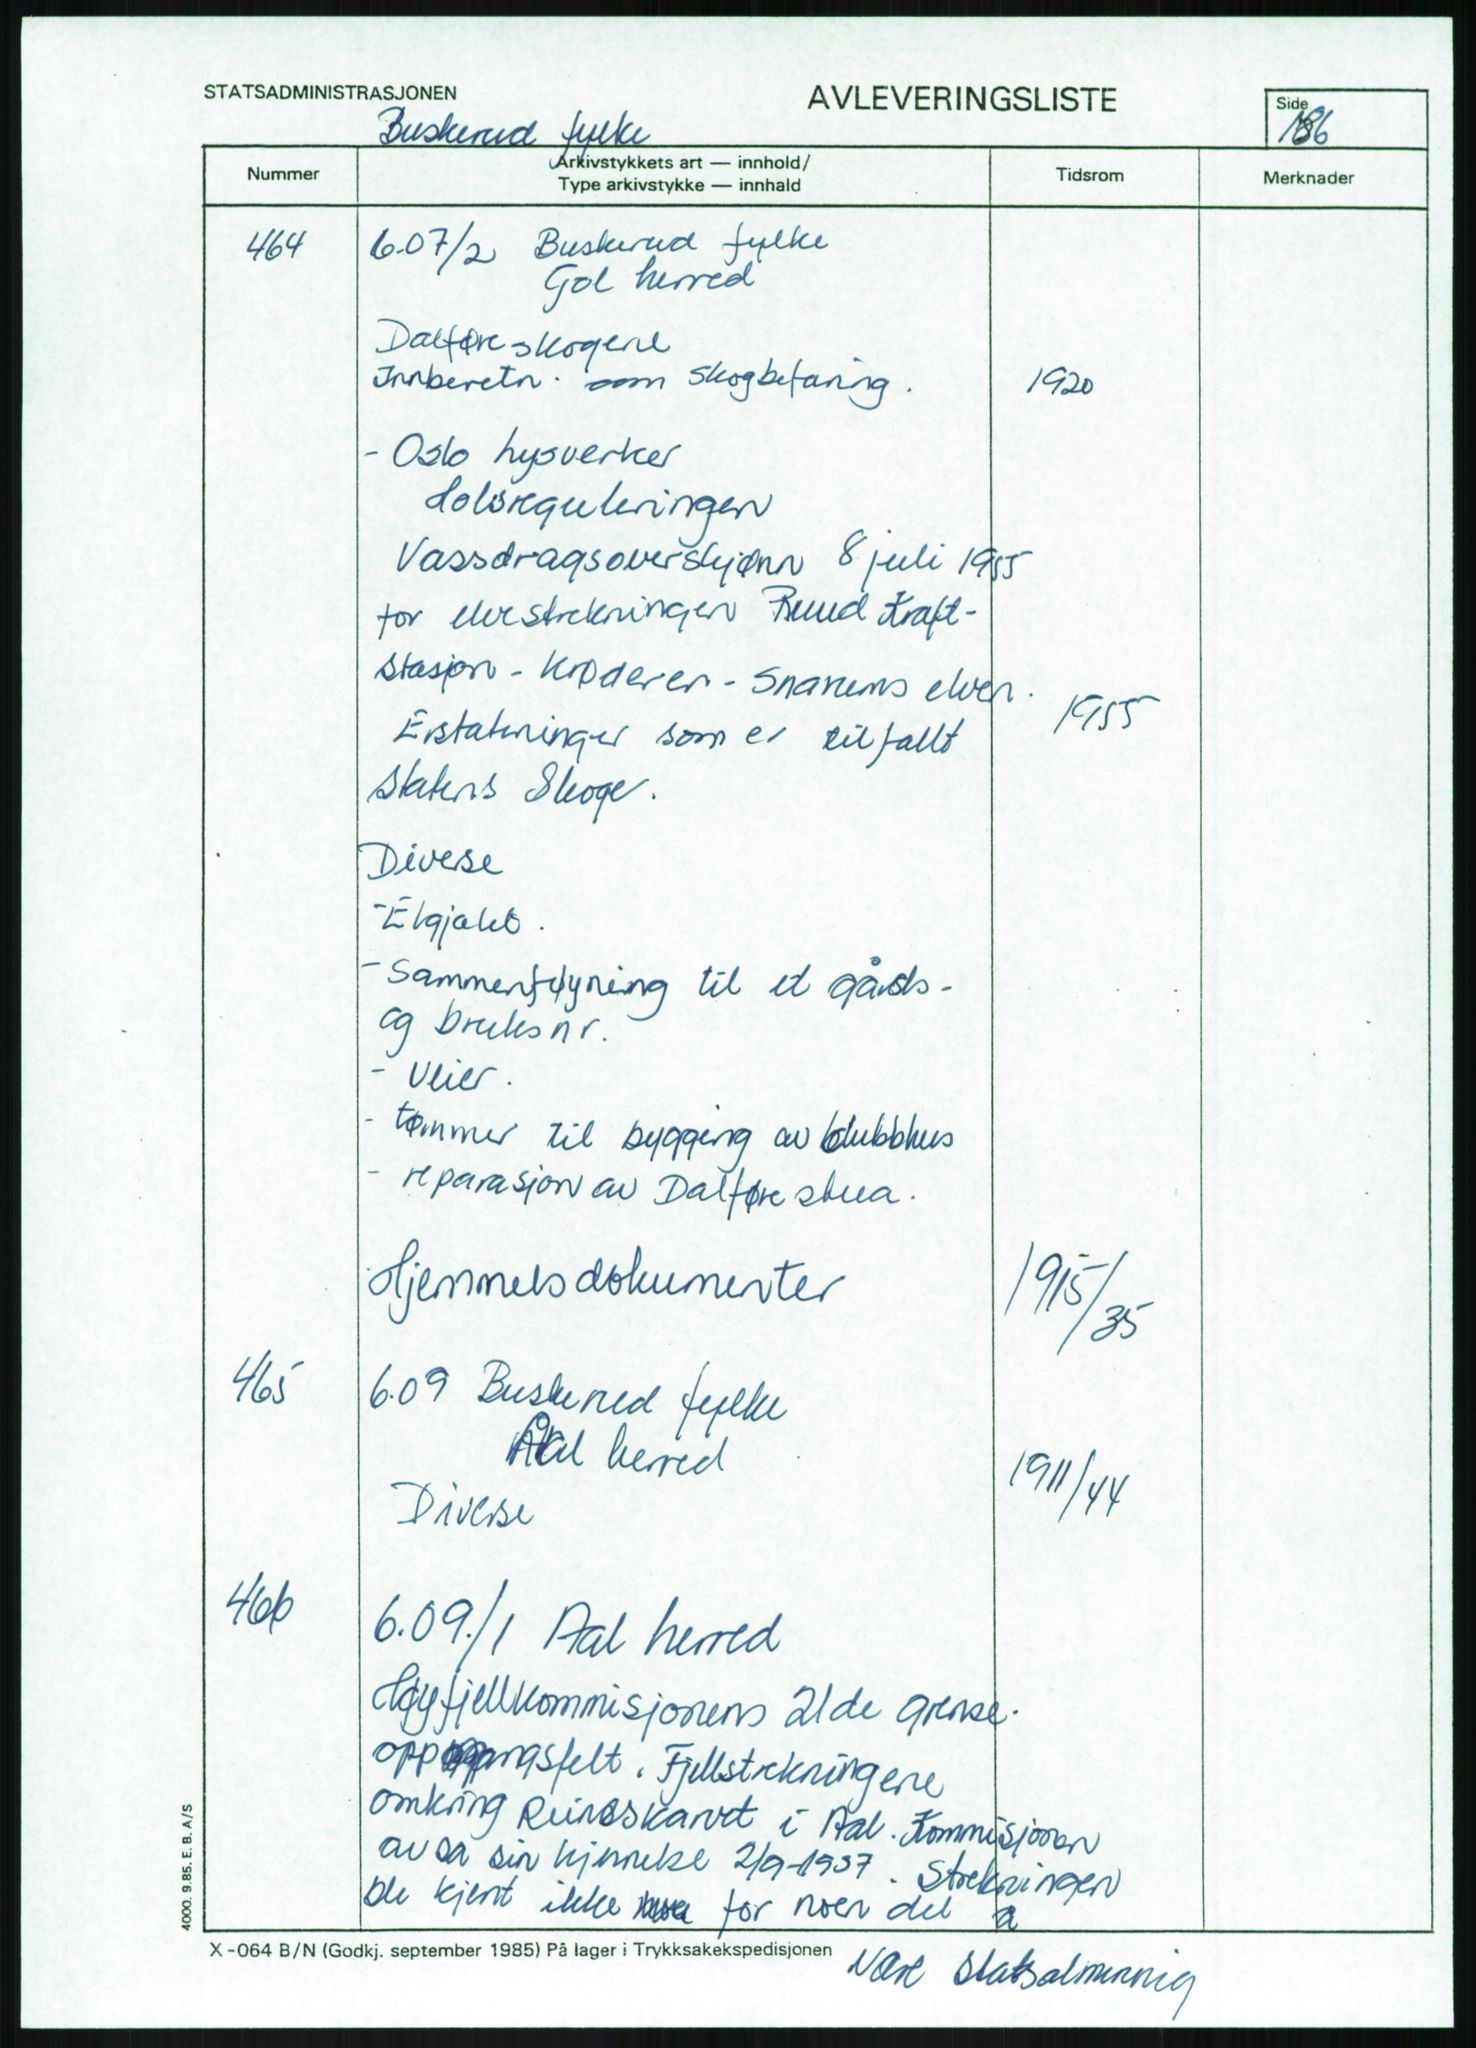 STATSADMINISTRASJONEN
AVLEVERINGSLISTE
Side
186
Buskerud fylke
Nummer
Arkivstykkets art — innhold/
Type arkivstykke — innhald
Tidsrom
Merknader
464 6.07/2 Buskerud fylke
Gol herred
Dalføreskogene
Innberetn. om skogbefaring. 1920
- Oslo lysverker
Holsreguleringen
Vassdragsoverskjønn 8 juli 1955
for elvestrekningen Ruud Kraft-
stasjon - Krøderen - Snarums elven.
1955
Erstatninger som er tilfallt
Statens Skoger.
Diverse
- Elgjakt.
- Sammenføyning til et gårds-
og bruksnr.
- Veier.
- tømmer til bygging av klubbhus
- reparasjon av Dalføre stua.
Hjemmelsdokumenter 1915/35
465 6.09 Buskerud fylke
Ål herred
1911/44
Diverse
466 6.09./1 Aal herred
Høyfjellkommisjonens 21de grense-
oppgangsfelt. Fjellstrekningene
omkring Reineskarvet i Aal. Kommisjonen
avsa sin kjennelse 2/9-1937. Strekningen
ble kjent ikke for noen del å
være statsalmenning
4000. 9.85. E. B. A/S
X-064 B/N (Godkj. september 1985) På lager i Trykksakekspedisjonen